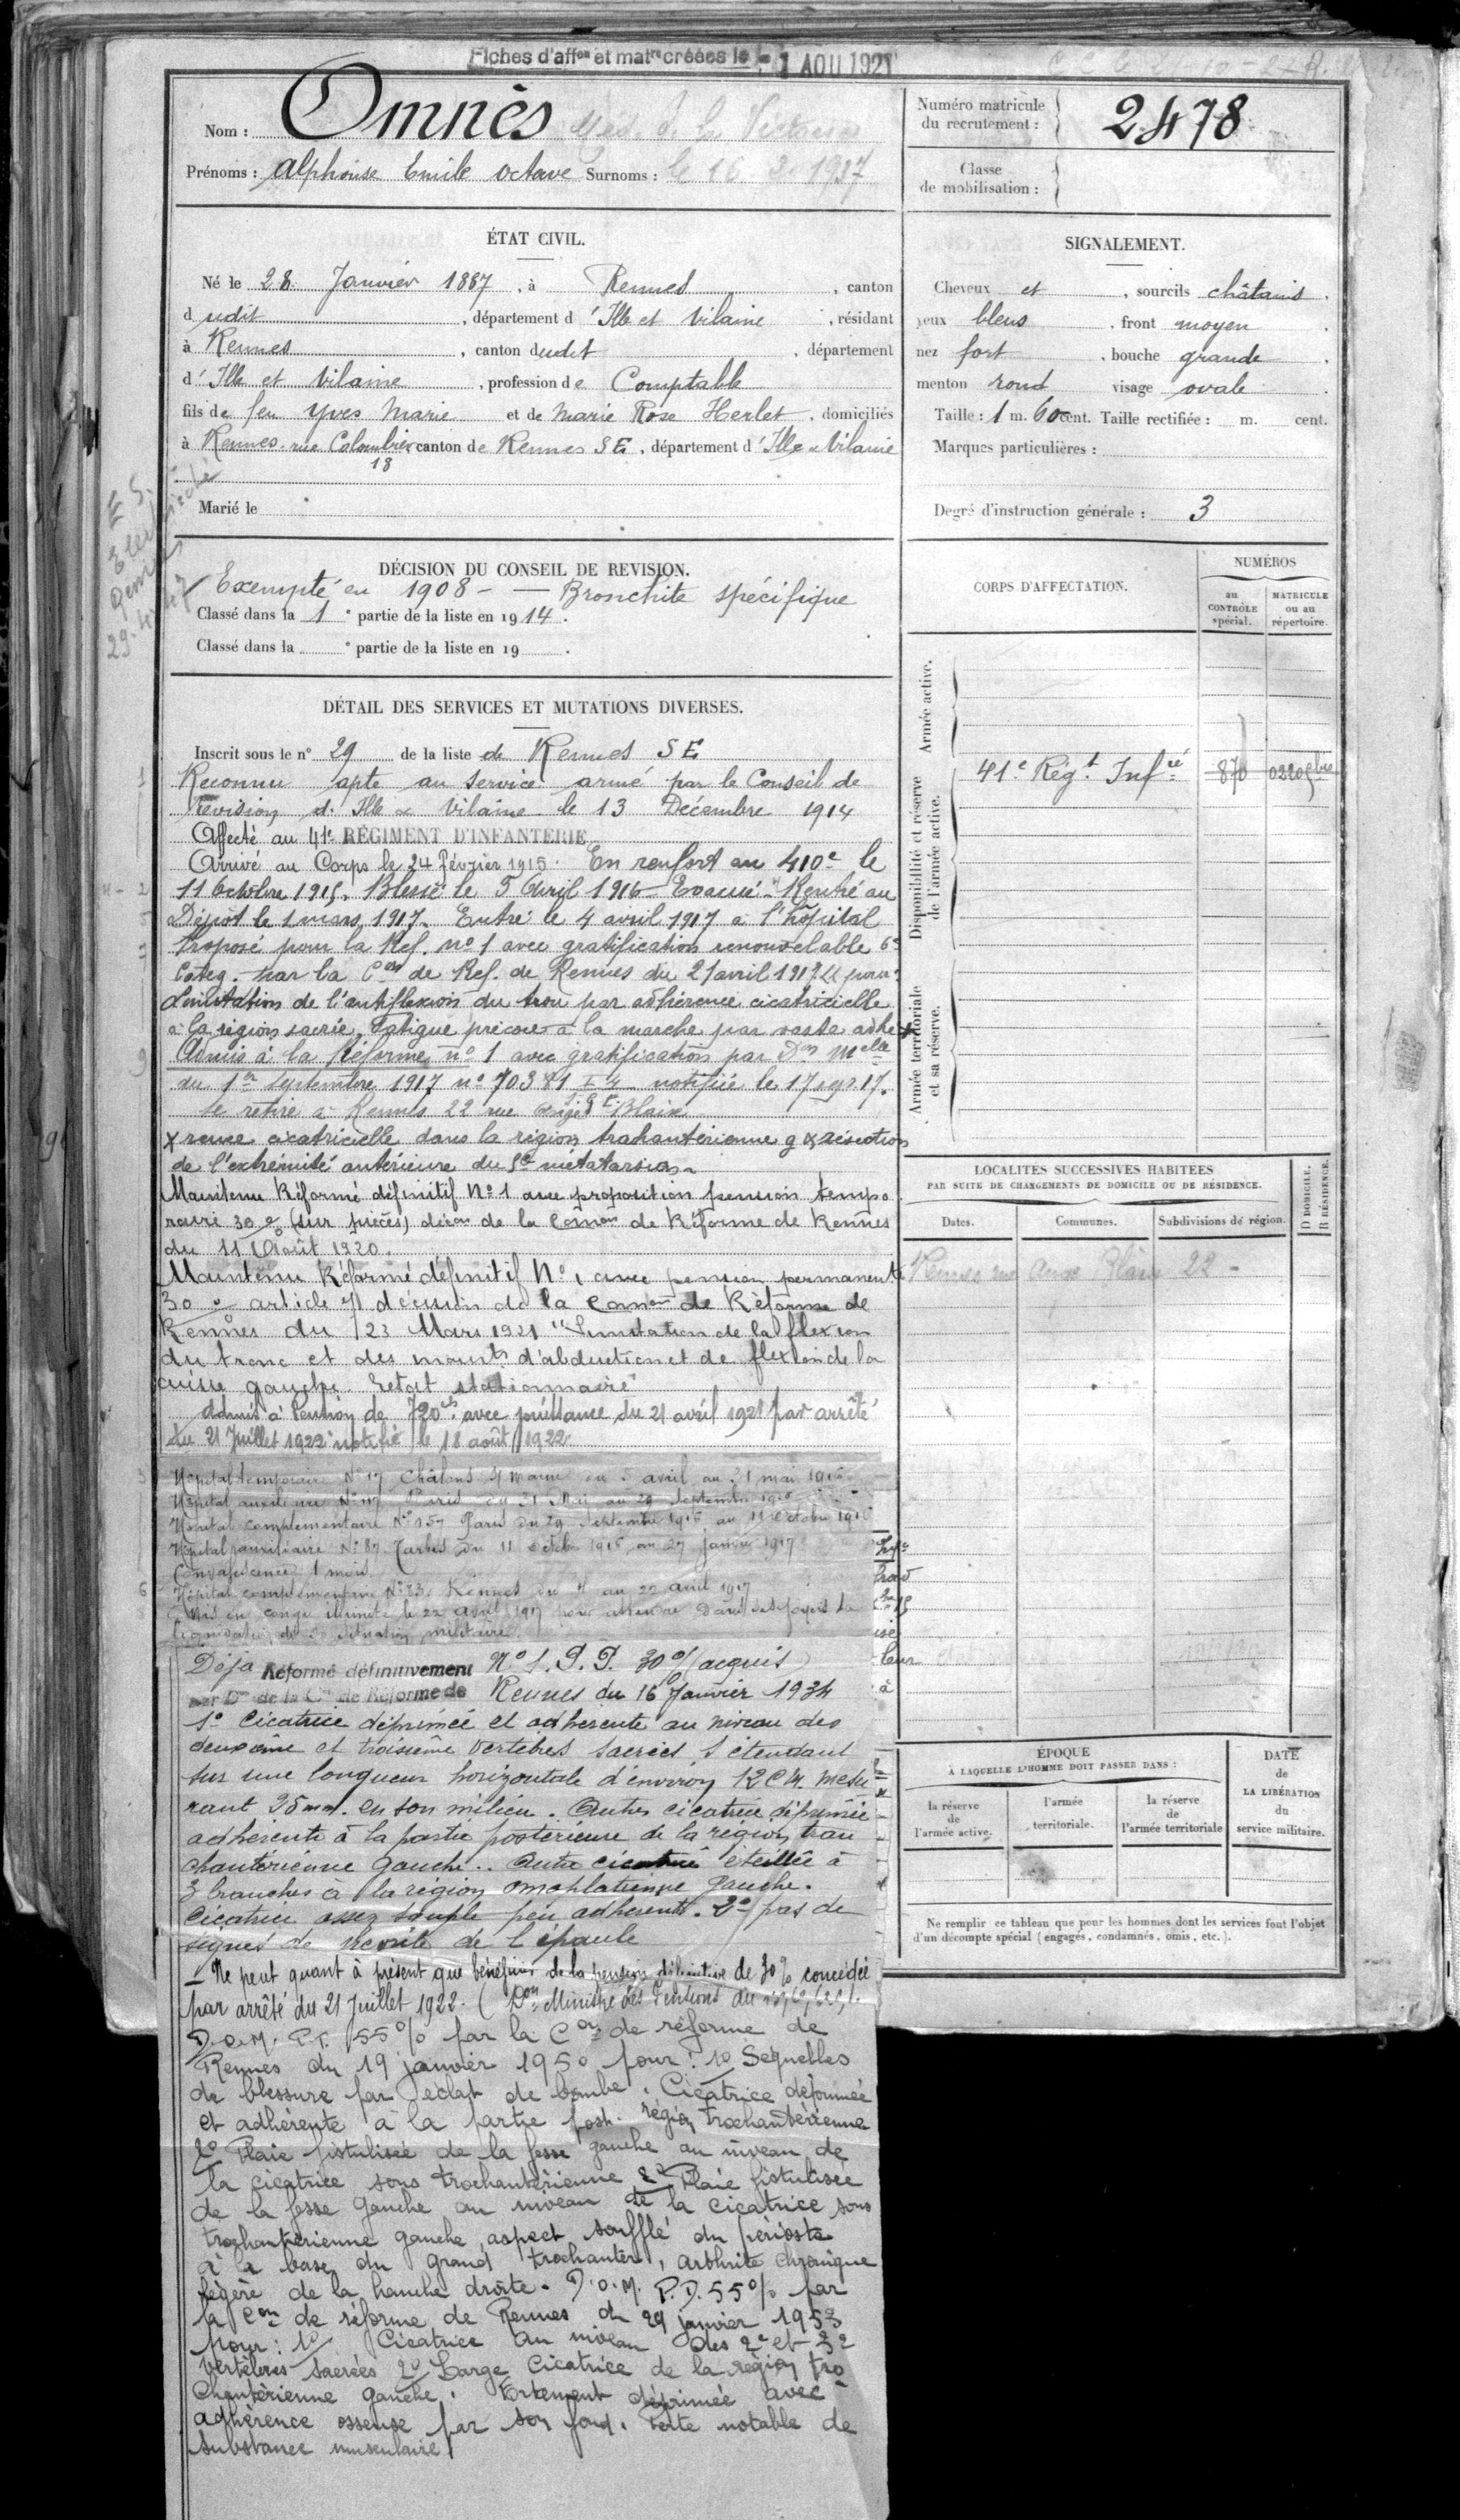 Fiches d'aff^on et mat^re créées le - 1 AOU 1921
Nom : Omnès Med. de la Victoire
Prénoms : Alphonse Emile Octave Surnoms : le 16 2 1937
Numéro matricule du recrutement : 2478
Classe de mobilisation :
ÉTAT CIVIL.
Né le 28 Janvier 1887, à Rennes, canton
dudit, département d'Ille et Vilaine, résidant
à Rennes, canton dudit, département
d'Ille et Vilaine, profession de Comptable
fils de feu Yves Marie et de Marie Rose Herlet, domiciliés
à Rennes rue Colombier 18 canton de Rennes SE, département d'Ille & Vilaine
Marié le
SIGNALEMENT.
Cheveux et, sourcils châtains.
yeux bleus, front moyen
nez fort, bouche grande
menton rond visage ovale
Taille : 1 m. 60 cent. Taille rectifiée : m. cent.
Marques particulières :
Degré d'instruction générale : 3
DÉCISION DU CONSEIL DE REVISION.
Exempté en 1908 - Bronchite spécifique
Classé dans la 1e partie de la liste en 1914.
Classé dans la e partie de la liste en 19 .
DÉTAIL DES SERVICES ET MUTATIONS DIVERSES.
Inscrit sous le n° 29 de la liste de Rennes SE
Reconnu apte au service armé par le Conseil de
Revision d'Ille & Vilaine le 13 Décembre 1914
Affecté au 41e RÉGIMENT D'INFANTERIE
Arrivé au Corps le 24 février 1915. En renfort au 410e le
11 Octobre 1915. Blessé le 5 Avril 1916 - Evacué - Rentré au
Dépôt le 1 mars 1917. Entré le 4 avril 1917 à l'hôpital
Proposé pour la Ref. n° 1 avec gratification renouvelable 6e
Categ. par la Con de Ref. de Rennes du 21 avril 1917 pour :
Limitation de l'antiflexion du tronc par adhérence cicatricielle
à la région sacrée. Fatigue précoce à la marche par vaste adhé x
Admis à la Réforme n° 1 avec gratification par Don Melle
du 1er septembre 1917 n° 70381 notifiée le 17 sept 17.
se retire à Rennes 22 rue Ange Blaize
x rence cicatricielle dans la région trochantérienne g & résection
de l'extrémité antérieure du 5e métatarsien
Maintenu Réformé définitif N° 1 avec proposition pension tempo
raire 30 % (sur pièces) décon de la Comon de Réforme de Rennes
du 11 Août 1920.
Maintenu Réformé définitif N° 1 avec pension permanente
30 % article 7 décision de la Comon de Réforme de
Rennes du 23 Mars 1921 "Limitation de la flexion
du tronc et des mouvts d'abduction et de flexion de la
cuisse gauche. Etat stationnaire"
Admis à Pension de 720 frs avec jouissance du 21 avril 1921 par arrêté
du 21 Juillet 1922 notifié le 18 août 1922
Hôpital temporaire N° 17 Châlons s/ Marne du avril au 31 mai 1916
Hôpital auxiliaire N° 117 Paris du 31 Mai au 29 Septembre 1916
Hôpital complémentaire N° 157 Paris du 29 Septembre 1916 au 11 Octobre 1916
Hôpital auxiliaire N° 87 Tarbes du 11 Octobre 1916 au 27 janvier 1917
Convalescence 1 mois.
Hôpital complémentaire N° 83 Rennes du 4 au 22 avril 1917
Mis en congé illimité le 22 avril 1917 pour attendre dans ses foyers la
liquidation de sa situation militaire.
Déjà Réformé définitivement N° 1. P.P. 30 % (acquis)
par Don de la Con de Réforme de Rennes du 16 Janvier 1934
1° Cicatrice déprimée et adhérente au niveau des
deuxième et troisième vertèbres sacrées s'étendant
sur une longueur horizontale d'environ 12 CM. mesu
rant 25mm. en son milieu. Autre cicatrice déprimée
adhérente à la partie postérieure de la région tro
chantérienne gauche.. Autre cicatrice étoilée à
3 branches à la région omoplatienne gauche.
Cicatrice assez souple peu adhérente. 2° pas de
signes de névrite de l'épaule
- Ne peut quant à présent que bénéficier de la pension définitive de 30 % concédée
par arrêté du 21 Juillet 1922. (Don Ministre des Pensions du
D.O.M. P.T. 55 % par la Con de réforme de
Rennes du 19 janvier 1950 pour : 1° Séquelles
de blessure par éclat de bombe. Cicatrice déprimée
et adhérente à la partie post. région trochantérienne
2° Plaie fistulisée de la fesse gauche au niveau de
la cicatrice sous trochantérienne 2° Plaie fistulisée
de la fesse gauche au niveau de la cicatrice sous
trochantérienne gauche, aspect soufflé du périoste
à la base du grand trochanter, arthrite chronique
légère de la hanche droite. D.O.M. P.D. 55 % par
la Con de réforme de Rennes du 29 janvier 1953
pour : 1° Cicatrice au niveau des 2e et 3e
vertèbres sacrées 2° Large cicatrice de la région tro
chantérienne gauche. Fortement déprimée avec
adhérence osseuse par son fond. Perte notable de
substance musculaire.
CORPS D'AFFECTATION.
NUMÉROS
au CONTRÔLE spécial.
MATRICULE ou au répertoire.
Armée active.
Disponibilité et réserve de l'armée active.
41e Régt Infrie 870
Armée territoriale et sa réserve.
LOCALITÉS SUCCESSIVES HABITÉES
PAR SUITE DE CHANGEMENTS DE DOMICILE OU DE RÉSIDENCE.
Dates. Communes. Subdivisions de région.
D DOMICILE. R RÉSIDENCE.
Rennes rue Ange Blaize 22 -
ÉPOQUE
À LAQUELLE L'HOMME DOIT PASSER DANS :
la réserve de l'armée active.
l'armée territoriale.
la réserve de l'armée territoriale
DATE de LA LIBÉRATION du service militaire.
Ne remplir ce tableau que pour les hommes dont les services font l'objet
d'un décompte spécial (engagés, condamnés, omis, etc.).